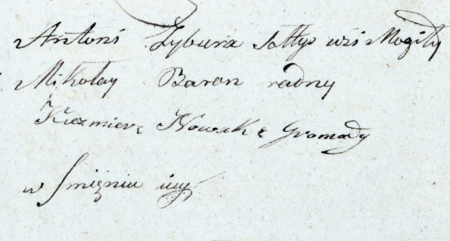 Antoni Zybura Sołtys wsi Mogiły
Mikołay Baran radny
Kazmierz Nowak z Gromady
w Imięniu